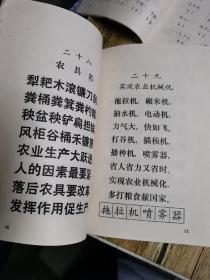 二十八
农具名
犁耙木滚镰刀
粪桶粪箕粪杓
秧盆秧铲扁担
风柜谷桶禾镰
农业生产大跃进
人的因素最要
落后农具要改革
发挥作用促生产
10
二十九
实现农业机械化
拖拉机，碾米机，
抽水机，电动机，
力气大，快如飞。
打谷机，插秧机，
播种机，喷雾器，
省人省力又省时。
实现农业机械化，
多打粮食献国家。
拖拉机喷雾器
11